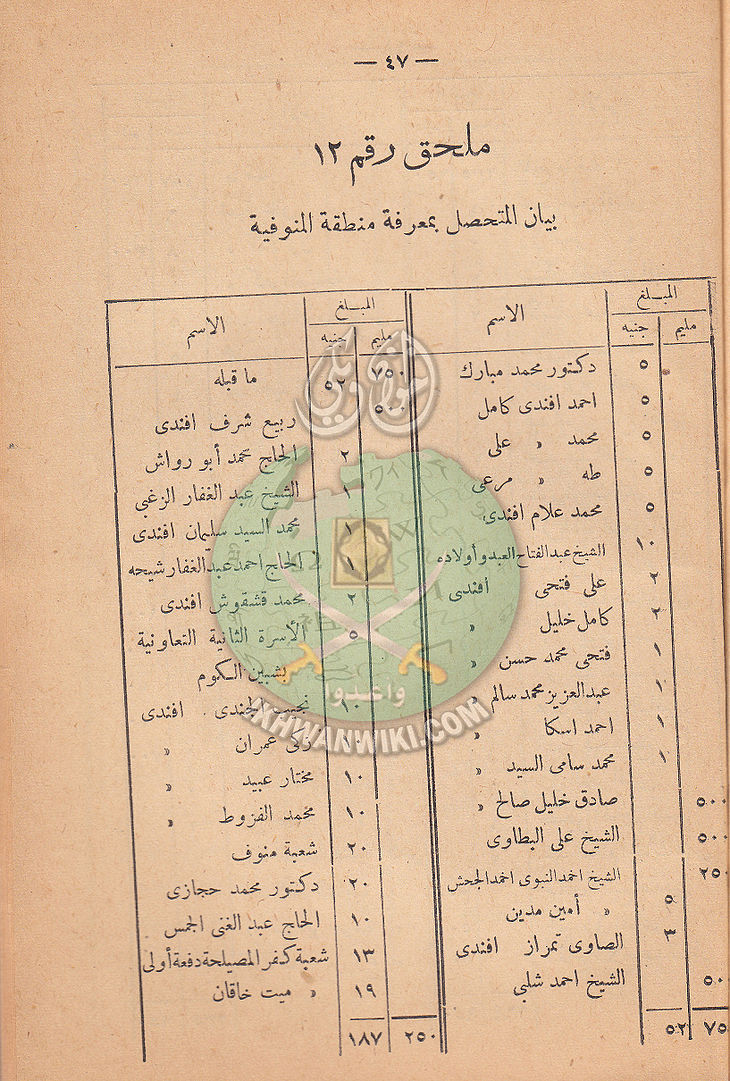 — ٤٧ —
ملحق رقم ١٢
بيان المتحصل بمعرفة منطقة المنوفية
المبلغ الاسم
مليم جنيه
٥ دكتور محمد مبارك
٥ احمد افندى كامل
٥ محمد » على
٥ طه » مرعى
٥ محمد علام افندى
١٠ الشيخ عبد الفتاح العبد وأولاده
٢ على فتحى افندى
٢ كامل خليل »
١ فتحى محمد حسن »
١ عبدالعزيز محمد سالم »
١ احمد اسكا »
١ محمد سامى السيد »
٥٠٠ صادق خليل صالح »
٥٠٠ الشيخ على البطاوى
٢٥٠ الشيخ احمد النبوى احمد الجحش
٥ » أمين مدين
٣ الصاوى تمراز افندى
٥٠ الشيخ احمد شلبى
٧٥ ٥٢
المبلغ الاسم
مليم جنيه
٧٥٠ ٥٢ ما قبله
٥٠٠ ربيع شرف افندى
٢ الحاج محمد أبو رواش
١ الشيخ عبد الغفار الزغبى
١ محمد السيد سليمان افندى
١ الحاج احمد عبد الغفار شيحه
٢ محمد قشقوش افندى
٥ الأسرة الثانية التعاونية
بشبين الكوم
١٠ نجيب الجندى افندى
زكى عمران »
١٠ مختار عبيد »
١٠ محمد الفزوط »
٢٠ شعبة منوف
٢٠ دكتور محمد حجازى
١٠ الحاج عبد الغنى الجمس
١٣ شعبة كفر المصيلحة دفعة أولى
١٩ » ميت خاقان
٢٥٠ ١٨٧
إخوان ويكي
واعدوا
IKHWANWIKI.COM